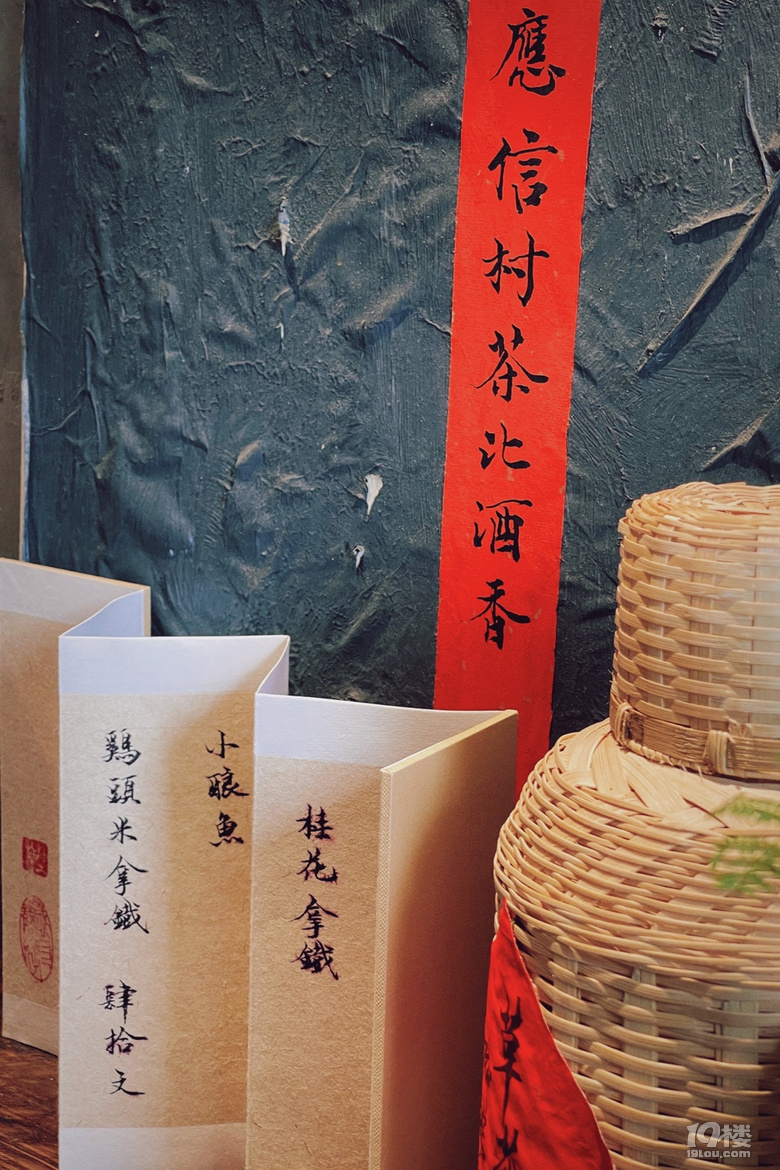 應信村茶比酒香
桂花拿鐵
小釀魚
鷄頭米拿鐵 肆拾文
19楼
19lou.com